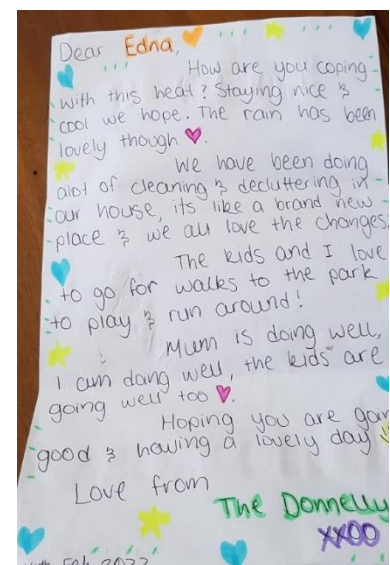 Dear Edna,
How are you coping
with this heat? Staying nice &
cool we hope. The rain has been
lovely though
We have been doing
alot of cleaning & decluttering in
our house, its like a brand new
place & we all love the changes.
The kids and I love
to go for walks to the park
to play & run around!
Mum is doing well,
I am doing well, the kids are
going well too
Hoping you are
good & having a lovely day
Love from
The Donnelly
XXOO
Feb 2022